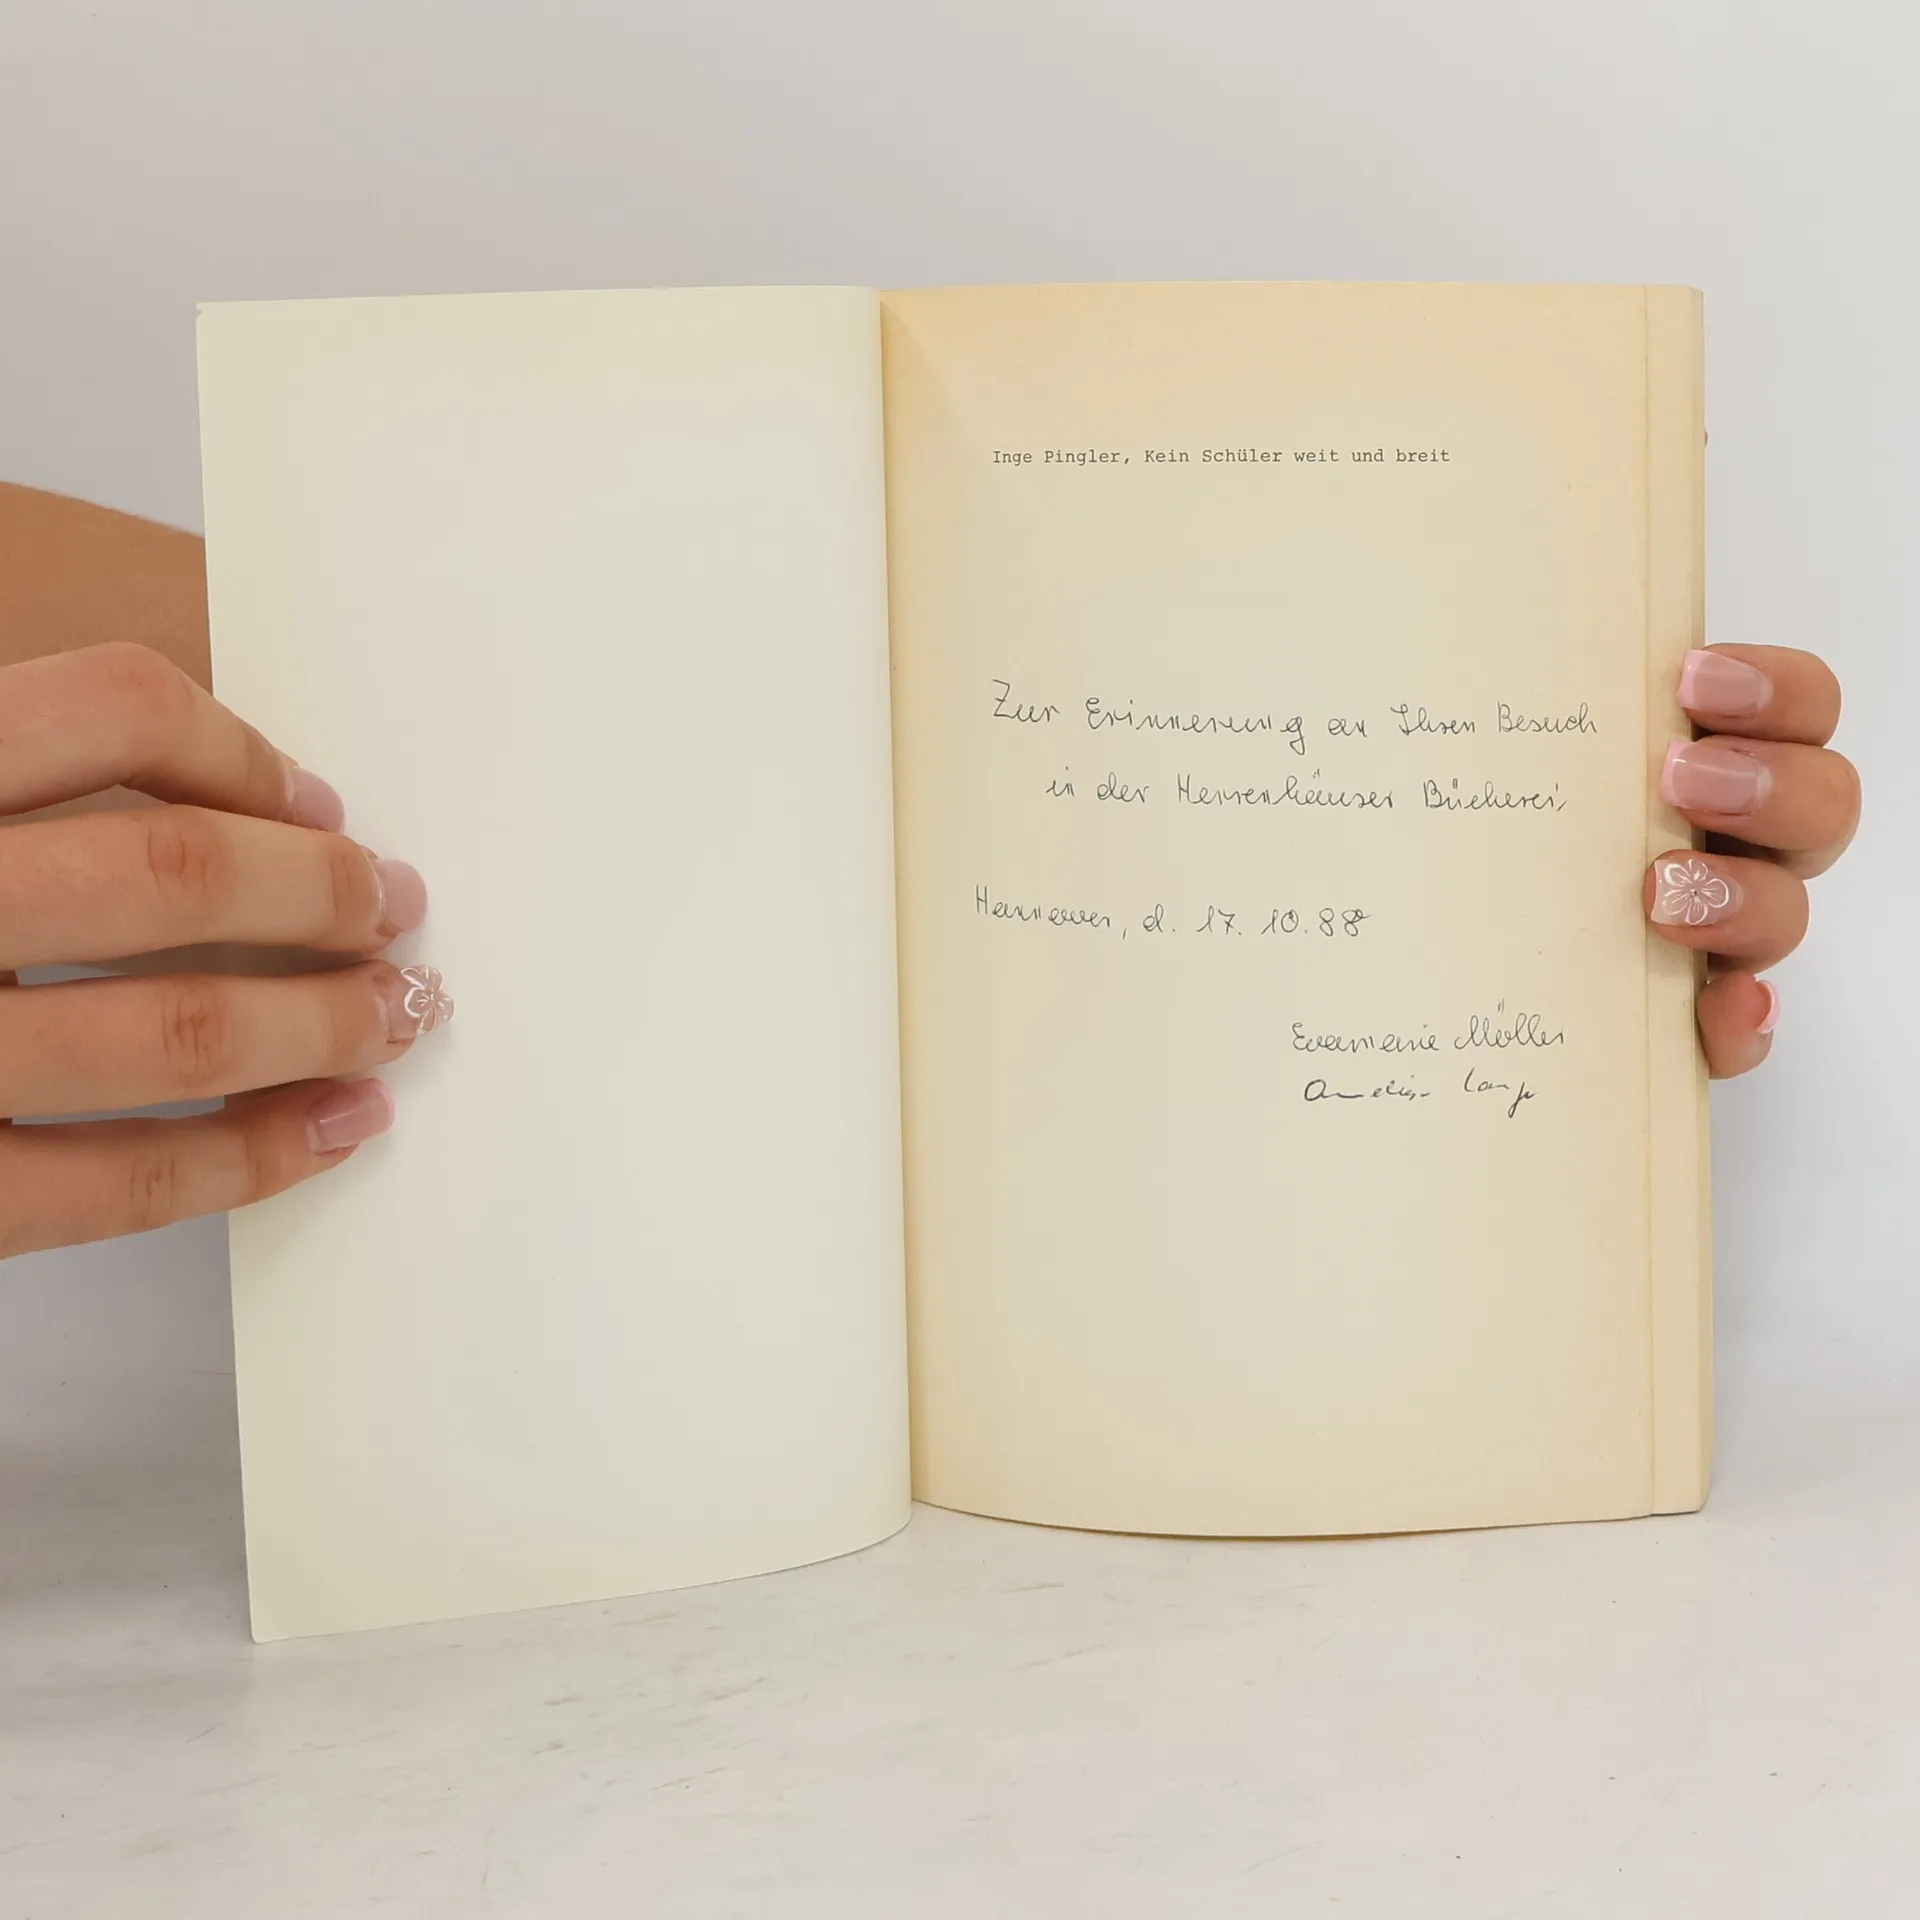 Inge Pingler, Kein Schüler weit und breit
Zur Erinnerung an Ihren Besuch
in der Herrenhäuser Bücherei,
Hannover, d. 17. 10. 88
Evamarie Möller